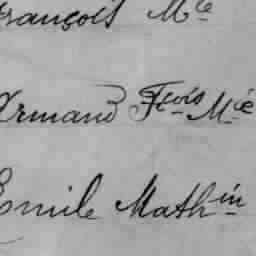 François Mie
Armand Fcois Mie
Emile Mathin